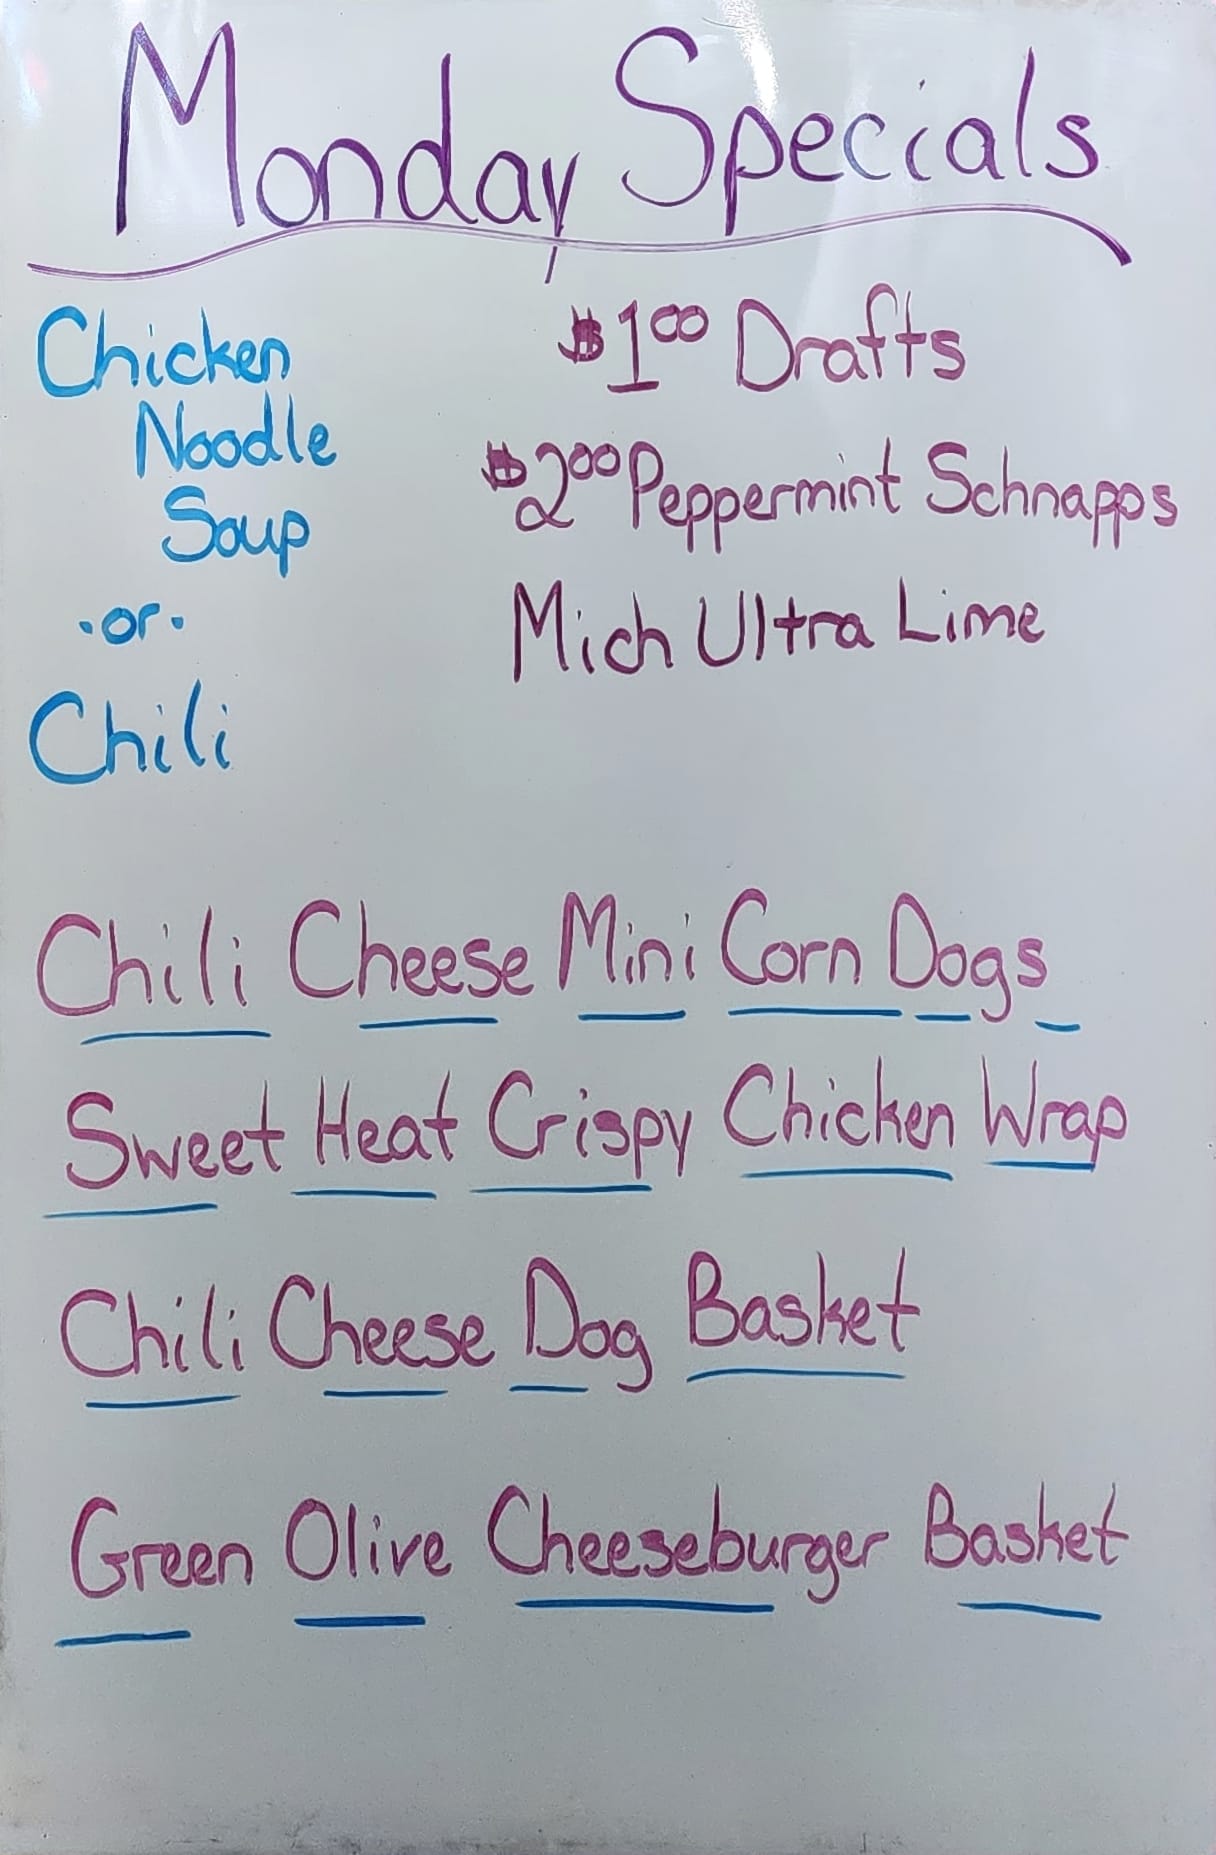 Monday Specials
Chicken
Noodle
Soup
·or·
Chili
$1.00 Drafts
$2.00 Peppermint Schnapps
Mich Ultra Lime
Chili Cheese Mini Corn Dogs
Sweet Heat Crispy Chicken Wrap
Chili Cheese Dog Basket
Green Olive Cheeseburger Basket